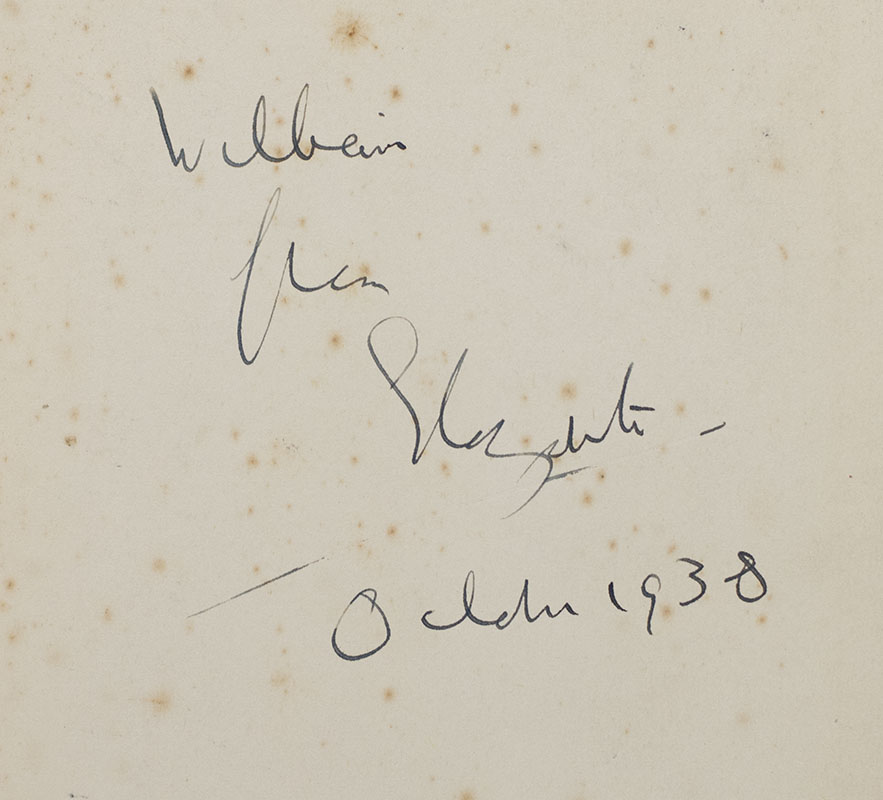 William
from
Elizabeth -
- October 1938